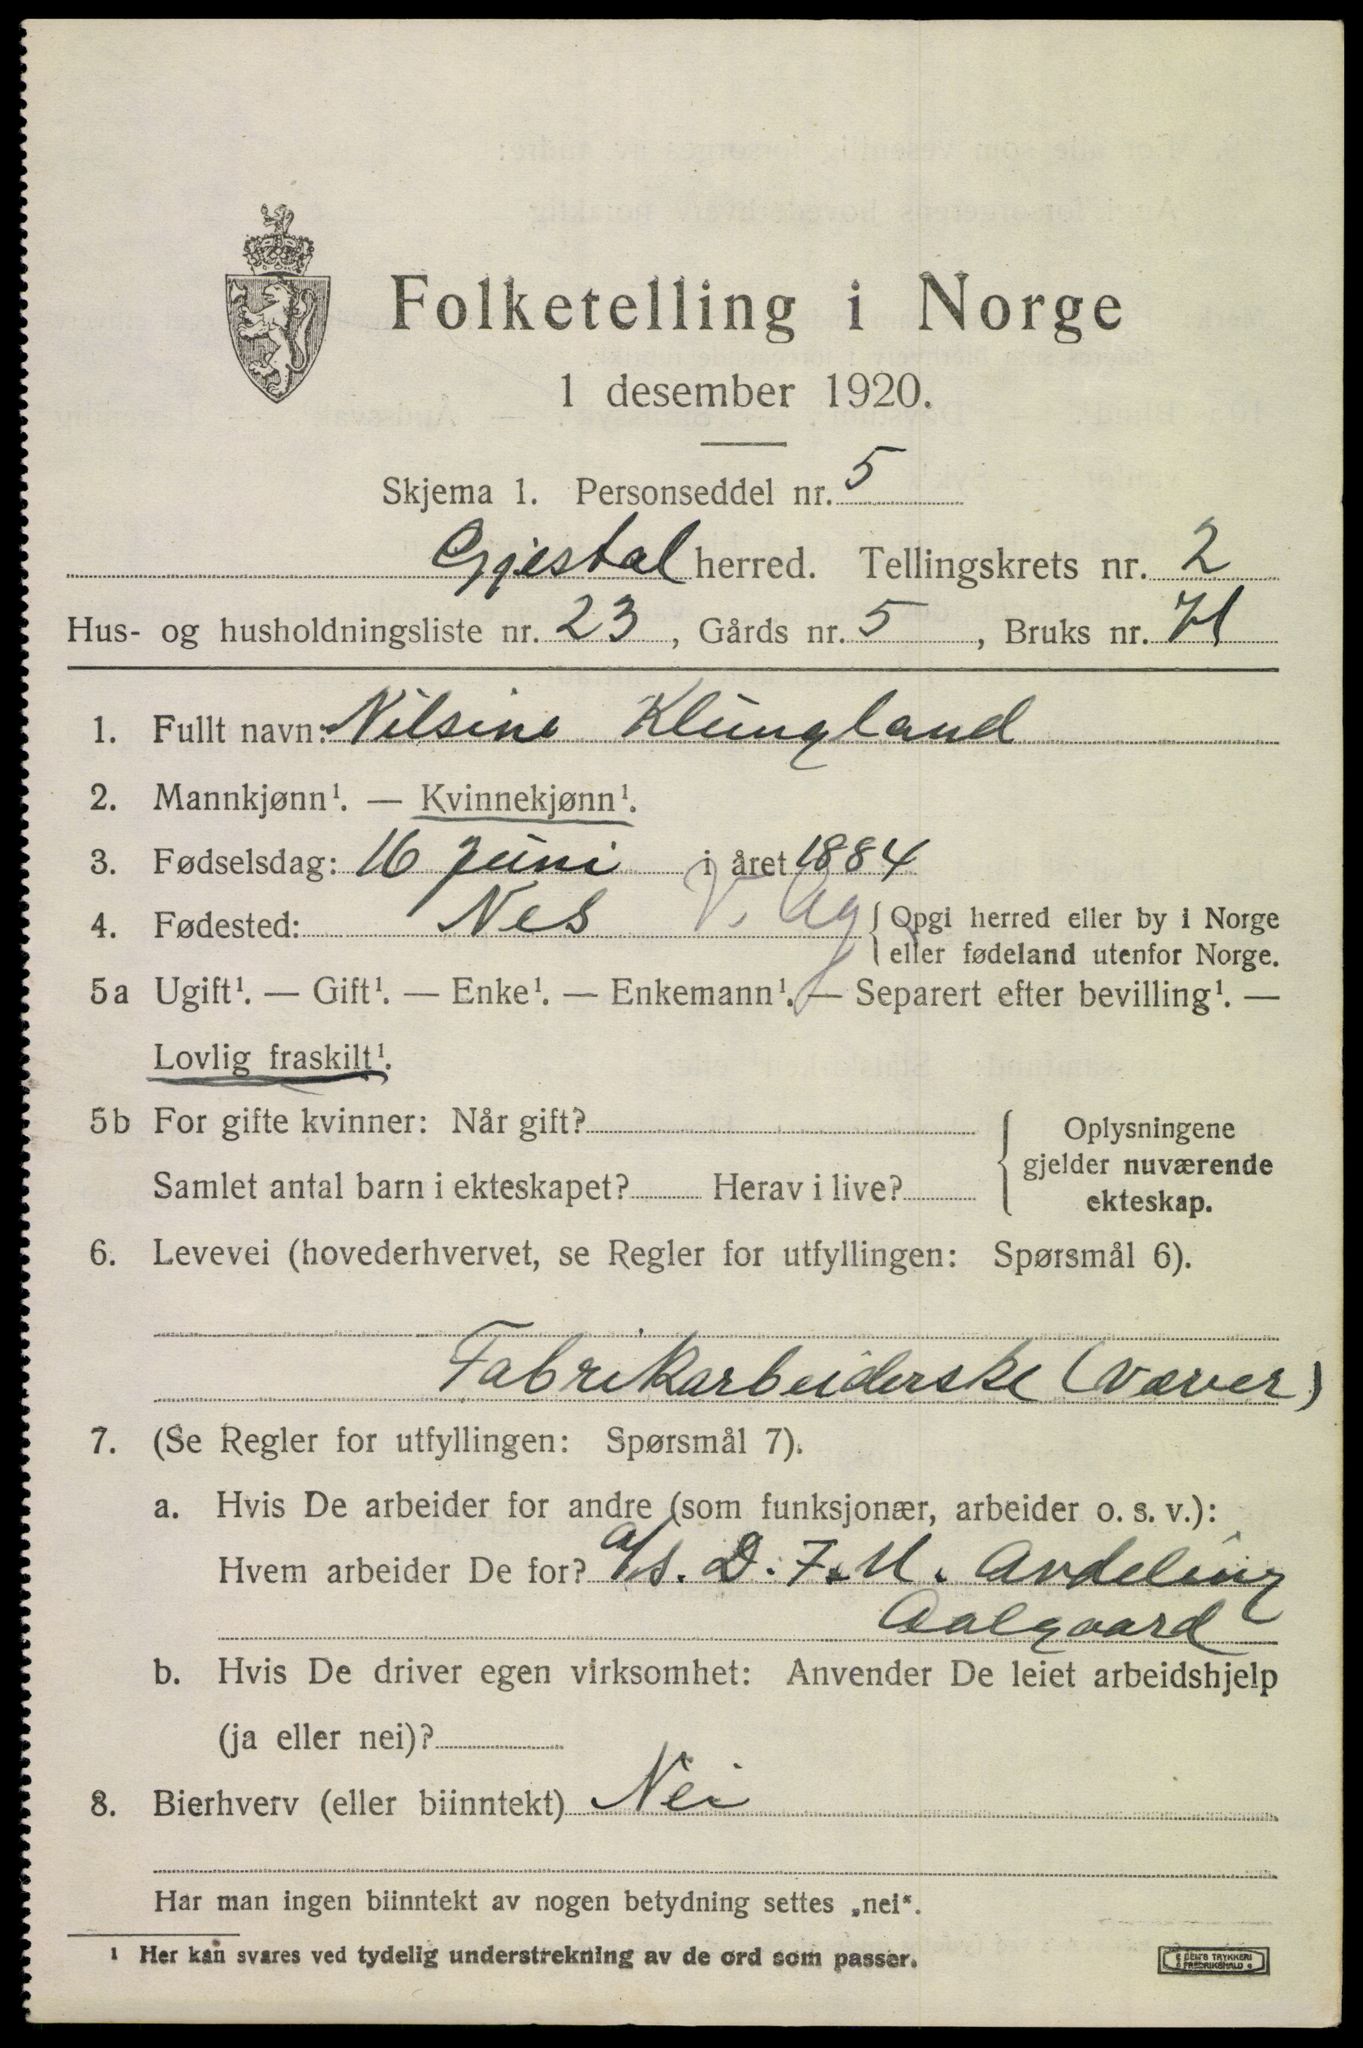 Folketelling i Norge
1 desember 1920.
Skjema 1. Personseddel nr. 5
Gjestal herred. Tellingskrets nr. 2
Hus- og husholdningsliste nr. 23, Gårds nr. 5, Bruks nr. 71
1. Fullt navn: Nilsine Klungland
2. Mannkjønn¹. — Kvinnekjønn¹.
3. Fødselsdag: 16 juni i året 1884
4. Fødested: Nes V. Ag { Opgi herred eller by i Norge
eller fødeland utenfor Norge.
5a Ugift¹. — Gift¹. — Enke¹. — Enkemann¹. — Separert efter bevilling¹. —
Lovlig fraskilt¹.
5b For gifte kvinner: Når gift?
Samlet antal barn i ekteskapet? Herav i live?
Oplysningene
gjelder nuværende
ekteskap.
6. Levevei (hovederhvervet, se Regler for utfyllingen: Spørsmål 6).
Fabrikarbeiderske (væver)
7. (Se Regler for utfyllingen: Spørsmål 7).
a. Hvis De arbeider for andre (som funksjonær, arbeider o. s. v.):
Hvem arbeider De for? a/s. D. F. U. Avdeling
Aalgaard
b. Hvis De driver egen virksomhet: Anvender De leiet arbeidshjelp
(ja eller nei)?
8. Bierhverv (eller biinntekt) Nei
Har man ingen biinntekt av nogen betydning settes „nei".
¹ Her kan svares ved tydelig understrekning av de ord som passer.